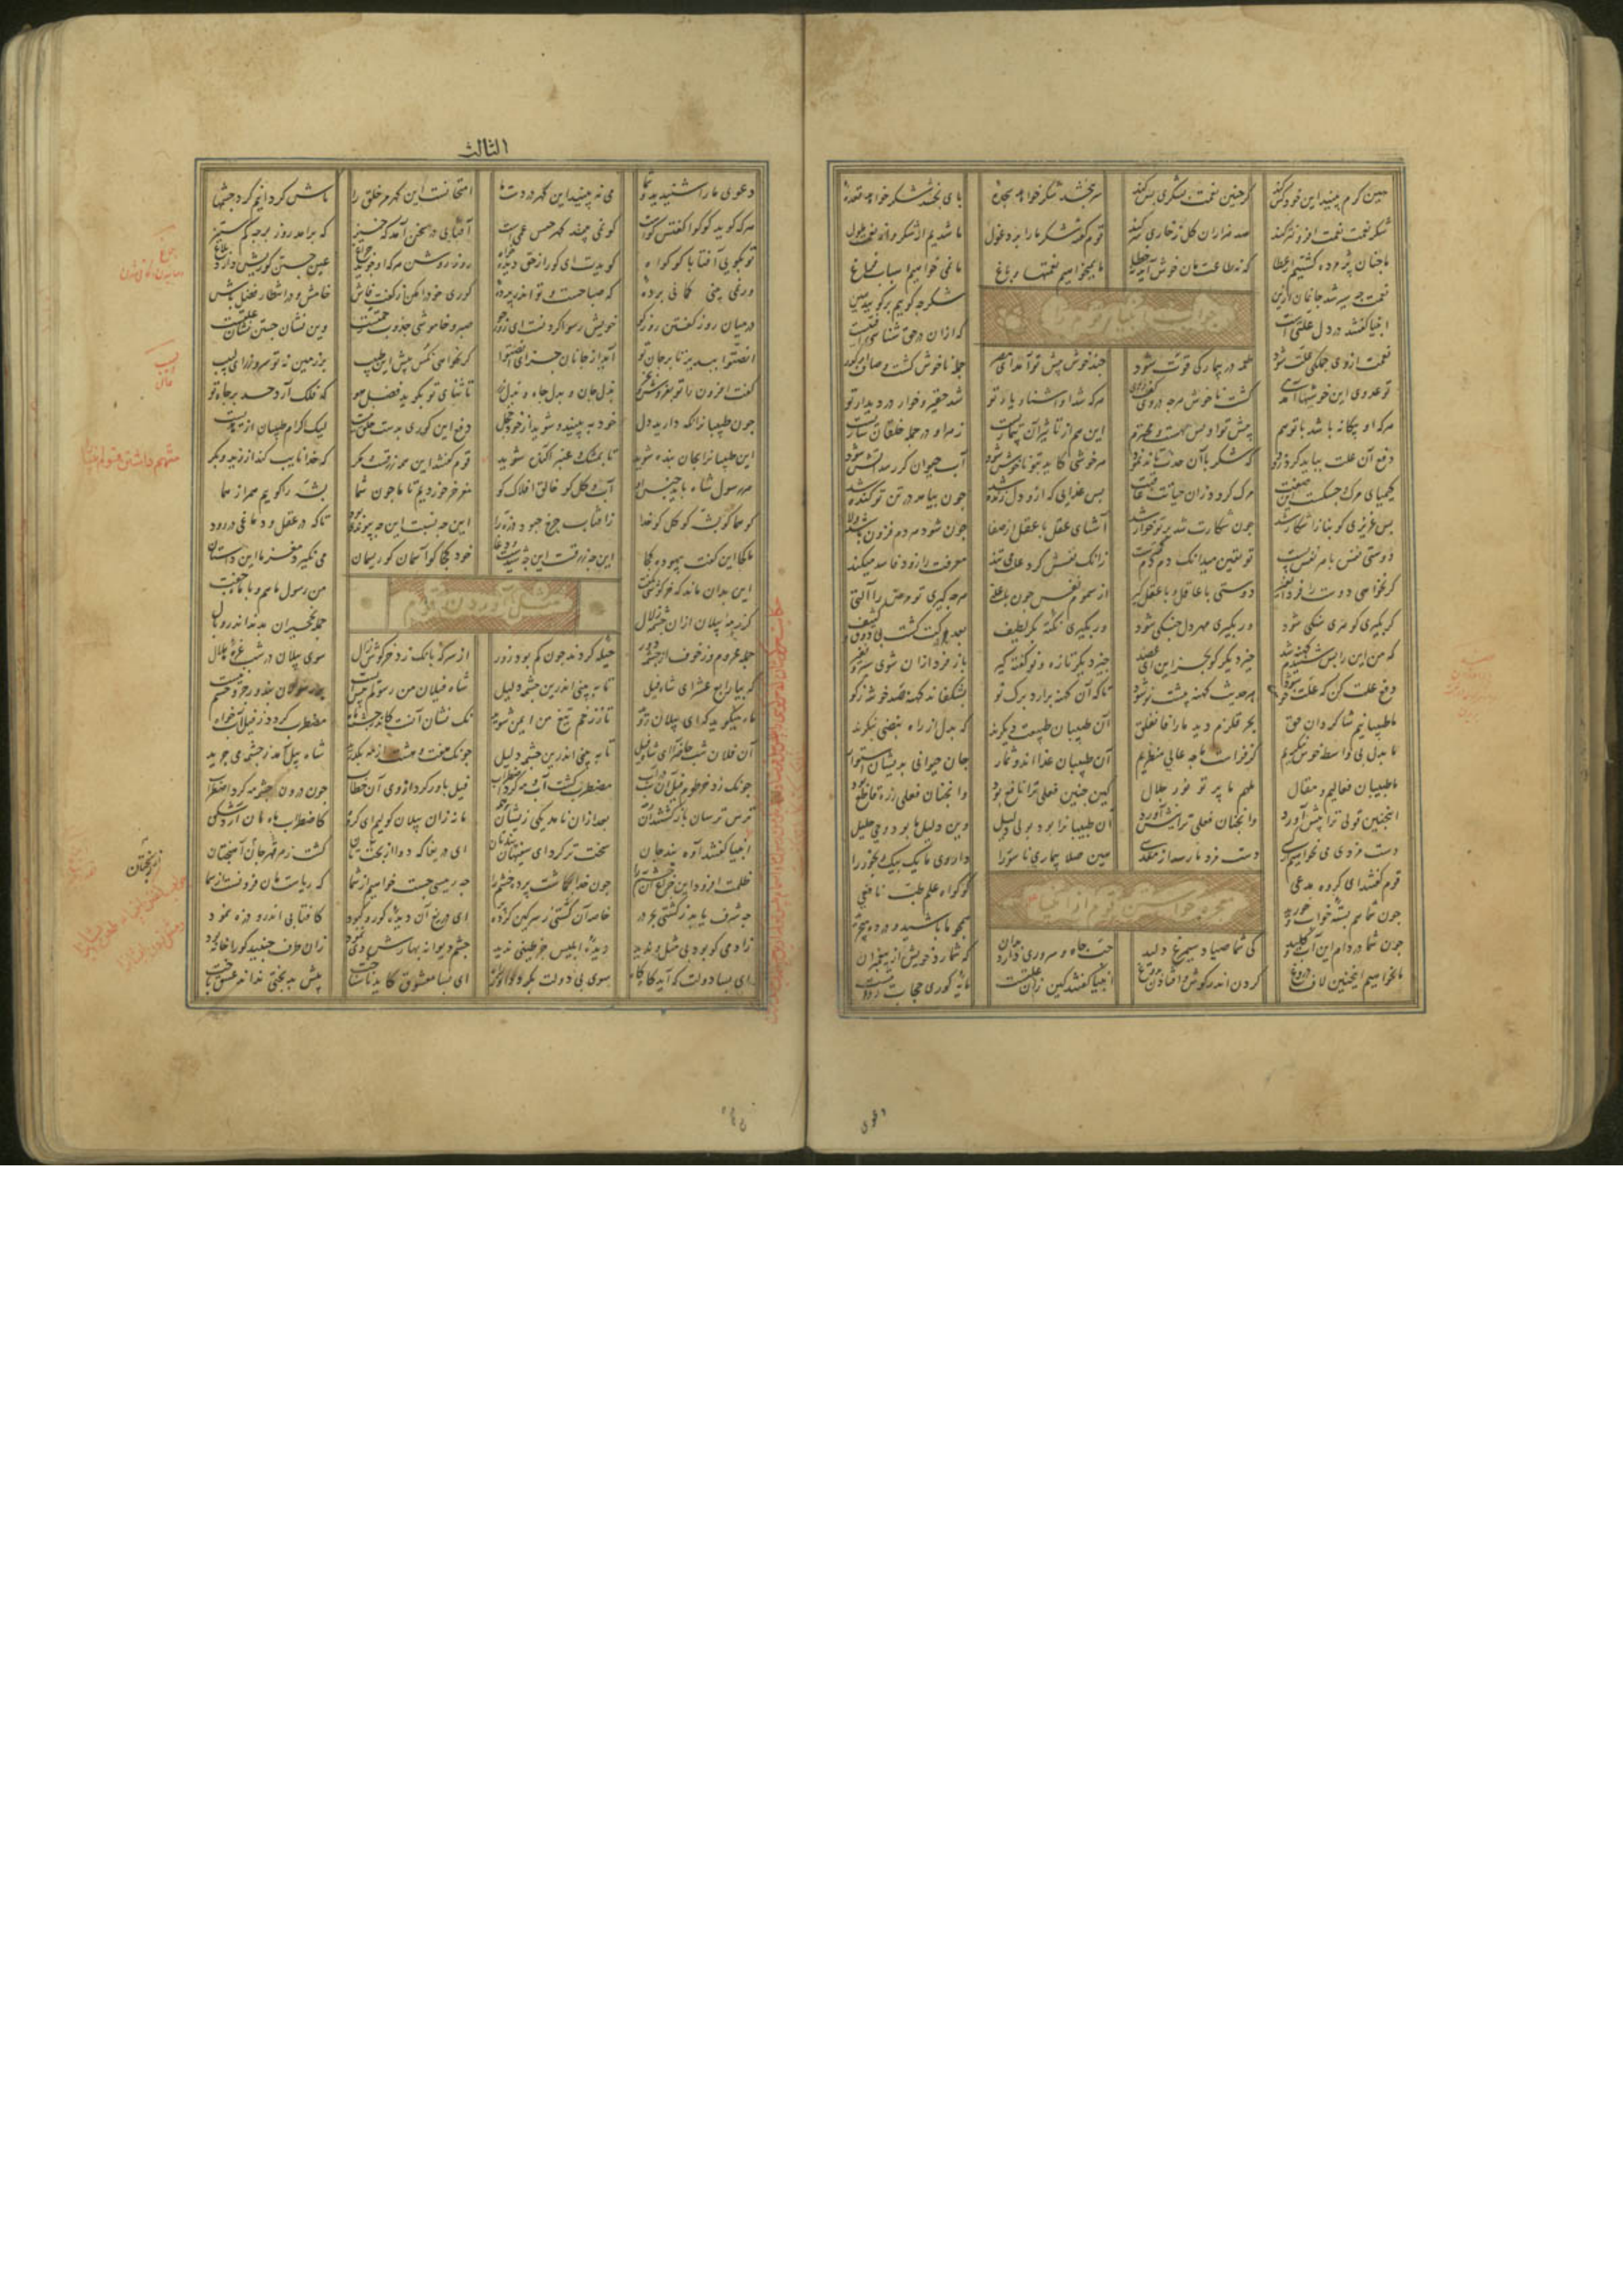 هین کرم بینید این خود کس کند کز چنین نعمت بشکری بس کند سر ببخشد شکر خواهد سجده پا ببخشد شکر خواهد قعده
شکر نعمت نعمت افزون تر کند صد هزاران گل ز خاری سر کند قوم گفته شکر ما را برد غول ما شدیم از شکر و از نعمت ملول
ما چنان پژمرده گشتیم از عطا که نه طاعتمان خوش آید نه خطا ما نمیخواهیم نعمتها و باغ ما نمی خواهیم اسباب فراغ
جواب انبیا قوم را
سیر شد جانمان ازین شکر چه گوییم برگو
انبیا گفتند در دل علتیست که ازان در حق شناسی آفتیست
نعمت از وی جملگی علت شود طعمه در بیمار کی قوت شود چند خوش پیش تو آمد ای مصر جمله ناخوش گشت و صاف او کدر
تو عدوی این خوشیها آمدی گشت ناخوش هر چه در وی کف زدی هر که شد او آشنا و یار تو شد حقیر و خوار در دیدار تو
هر که او بیگانه باشد با تو هم پیش تو او بس مهست و محترم این هم از تاثیر آن بیماریست زهر او در جمله خلقان ساریست
دفع آن علت بباید کرد زود که شکر با آن حدث نمود هر خوشی کاید بتو ناخوش شود آب حیوان گر رسد آتش شود
کیمیای مرگ و جسکست آن صفت مرگ گردد زان حیاتت عاقبت بس غذایی که ازو دل زنده شد چون بیامد در تن تو گنده شد
بس عزیزی کو بناز اشکار شد چون شکارت شد بر تو خوار شد آشنای عقل با عقل از صفا چون شود هر دم فزون باشد ولا
دوستی نفس با هر نفس پست تو یقین میدانک دم دم کمترست زانک نفسش گرد علت می تند معرفت را زود فاسد میکند
گر نخواهی دوست را فردا نفیر دوستی با عاقل و با عقل گیر از سموم نفس چون با علتی هر چه گیری تو مرض را آلتی
گر بگیری گوهری سنگی شود ور بگیری مهر دل جنگی شود ور بگیری نکته بکر لطیف بعد درکت گشت بی ذوق و کثیف
که من این را بس شنیدم کهنه شد چیز دیگر گو بجز این ای عضد چیز دیگر تازه و نو گفته گیر باز فردا زان شوی سیر و نفیر
دفع علت کن که علت خو شود هر حدیث کهنه پیشت نو شود تا که آن کهنه برآرد برگ نو بشکفاند کهنه صد خوشه ز گو
ما طبیبانیم شاگردان حق بحر قلزم دید ما را فانفلق آن طبیبان طبیعت دیگرند که بدل از راه نبضی بنگرند
ما بدل بی واسطه خوش بنگریم کز فراست ما به عالی منظریم آن طبیبان غذااند و ثمار جان حیوانی بدیشان استوار
ما طبیبان فعالیم و مقال ملهم ما پرتو نور جلال کین چنین فعلی ترا نافع بود وانچنان فعلی ز ره قاطع بود
اینچنین قولی ترا پیش آورد وانچنان فعلی ترا نیش آورد آن طبیبانرا بود بولی دلیل وین دلیل ما بود وحی جلیل
دست مزدی می نخواهیم از کسی دست مزد ما رسد از مقدسی هین صلا بیماری ناسور را داروی ما یک بیک رنجور را
معجزه خواستن قوم از انبیا
قوم گفتند ای گروه مدعی کو گواه علم طب نافعی
چون شما هم بسته خواب و خورید همچو ما باشید در ده می چرید
چون شما در دام این آب و گلید کی شما صیاد سیمرغ دلید حب جاه و سروری دارد بران که شمارد خویش از پیغمبران
ما نخواهیم اینچنین لاف و دروغ کردن اندر گوش و افتادن بدوغ انبیا گفتند کین زان علتست مایه کوری حجاب رؤیتست
الثالث
دعوی ما را شنیدید و شما می نه بینید این گهر در دست ما امتحانست این گهر مر خلق را ماش گردانیم گرد چشمها
هر که گوید کو گوا گفتش گواست کو نمی بیند گهر حبس عماست آفتابی در سخن آمد که خیز که برآمد روز برجه کم ستیز
تو بگویی آفتابا کو گواه گویدت ای کور از حق دیده خواه روز روشن هر که او جوید چراغ عین جستن کوریش دارد بلاغ
ور نمی بینی گمانی برده که صباحست و تو اندر پرده کوری خود را مکن زین گفت فاش خامش و در انتظار فضل باش
در میان روز گفتن روز کو خویش رسوا کردنست ای روزجو صبر و خاموشی جذوب رحمتست وین نشان جستن نشان علتست
انصتوا بپذیر تا بر جان تو آید از جانان جزای انصتوا گر نخواهی نکس پیش این طبیب بر زمین زن تو سر و زر ای لبیب
گفت افزون را تو بفروش و بخر بذل جان و بذل جاه و بذل زر تا ثنای تو بگوید فضل هو که فلک آرد حسد بر جاه تو
چون طبیبانرا نگه دارید دل خود ببینید و شوید از خود خجل دفع این کوری بدست خلق نیست لیک اکرام طبیبان از هدیست
این طبیبانرا بجان بنده شوید تا بمشک و عنبر آکنده شوید قوم گفتند این همه زرقست و مکر که خدا نایب کند از زید و بکر
هر رسول شاه باید جنس او آب و گل کو خالق افلاک کو مغز خر خوردیم تا ما چون شما پشه را گوییم همراز هما
کو هما کو پشه کو گل کو خدا ز افتاب چرخ چبود ذره را این چه نسبت این چه پیوندی بود تا که در عقل و دماغی در رود
ما کجا این گفت بیهوده کجا این چه زرقست این چه شیدست و دغا خود کجا کو آسمان کو ریسمان می نگیرد مغز ما این داستان
مثل آوردن قوم
این بدان ماند که خرگوشی بگفت من رسول ماهم و با ماه جفت
کز رمه پیلان ازان چشمه زلال جمله نخچیران بدند اندر وبال
جمله محروم و ز خوف از چشمه دور حیله کردند چون کم بود زور از سر که بانک زد خرگوش زال سوی پیلان در شب غره هلال
که بیا رابع عشر ای شاه پیل تا به بینی اندرین چشمه دلیل شاه پیلان من رسولم پیش بیست بر رسولان بند و زجر و خشم نیست
ماه میگوید که ای پیلان روید تا ززخم تیغ من ایمن شوید نک نشان آنست کاندر چشمه ماه مضطرب گردد ز پیل آبخواه
آن فلان شب حاضر آ ای شاه پیل تا به بینی اندرین چشمه دلیل چونک هفت و هشت از مه بگذرید شاه پیل آمد ز چشمه می چرید
چونک زد خرطوم پیل آن شب در آب مضطرب گشت آب و مه کرد اضطراب پیل باور کرد از وی آن خطاب چون درون چشمه مه کرد اضطراب
ترس ترسان باز گشتند آن بعد ازان نامد یکی زیشان ما نه زان پیلان گولیم ای گروه کاضطراب ماه
انبیا گفتند آوه پند جان سخت تر کرد ای سفیهان بندتان ای دریغا که دوا در رنجتان گشت زهر قهر جان آهنجتان
ظلمت افزود این چراغ آن چشم را چون خدا بگماشت پرده خشم را چه رییسی جست خواهیم از شما که ریاستمان فزونست از سما
چه شرف یابد ز کشتی بحر در خاصه آن کشتی ز سرگین گشته پر ای دریغ آن دیده کور و کبود کافتابی اندرو ذره نمود
زادمی کو بود بی مثل و ندید دیده ابلیس جز طینی ندید چشم دیوانه بهارش دی نمود زان طرف جنبید کو را خانه بود
ای بسا دولت که آید گاه گاه سوی بی دولت بگردد او ز راه ای بسا معشوق کاید ناشناخت پیش بدبختی نداند عشق باخت